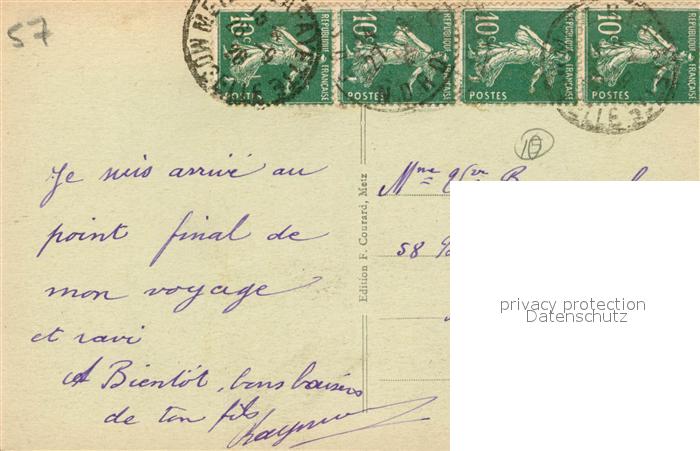 57
10c 10c 10c 10c
REPUBLIQUE FRANÇAISE REPUBLIQUE FRANÇAISE REPUBLIQUE FRANÇAISE REPUBLIQUE FRANÇAISE
POSTES POSTES POSTES POSTES
Je suis arrivé au
point final de
mon voyage
et ravi
A Bientôt, bons baisers
de ton fils
Edition F. Courard, Metz
10
Mme
58
privacy protection
Datenschutz